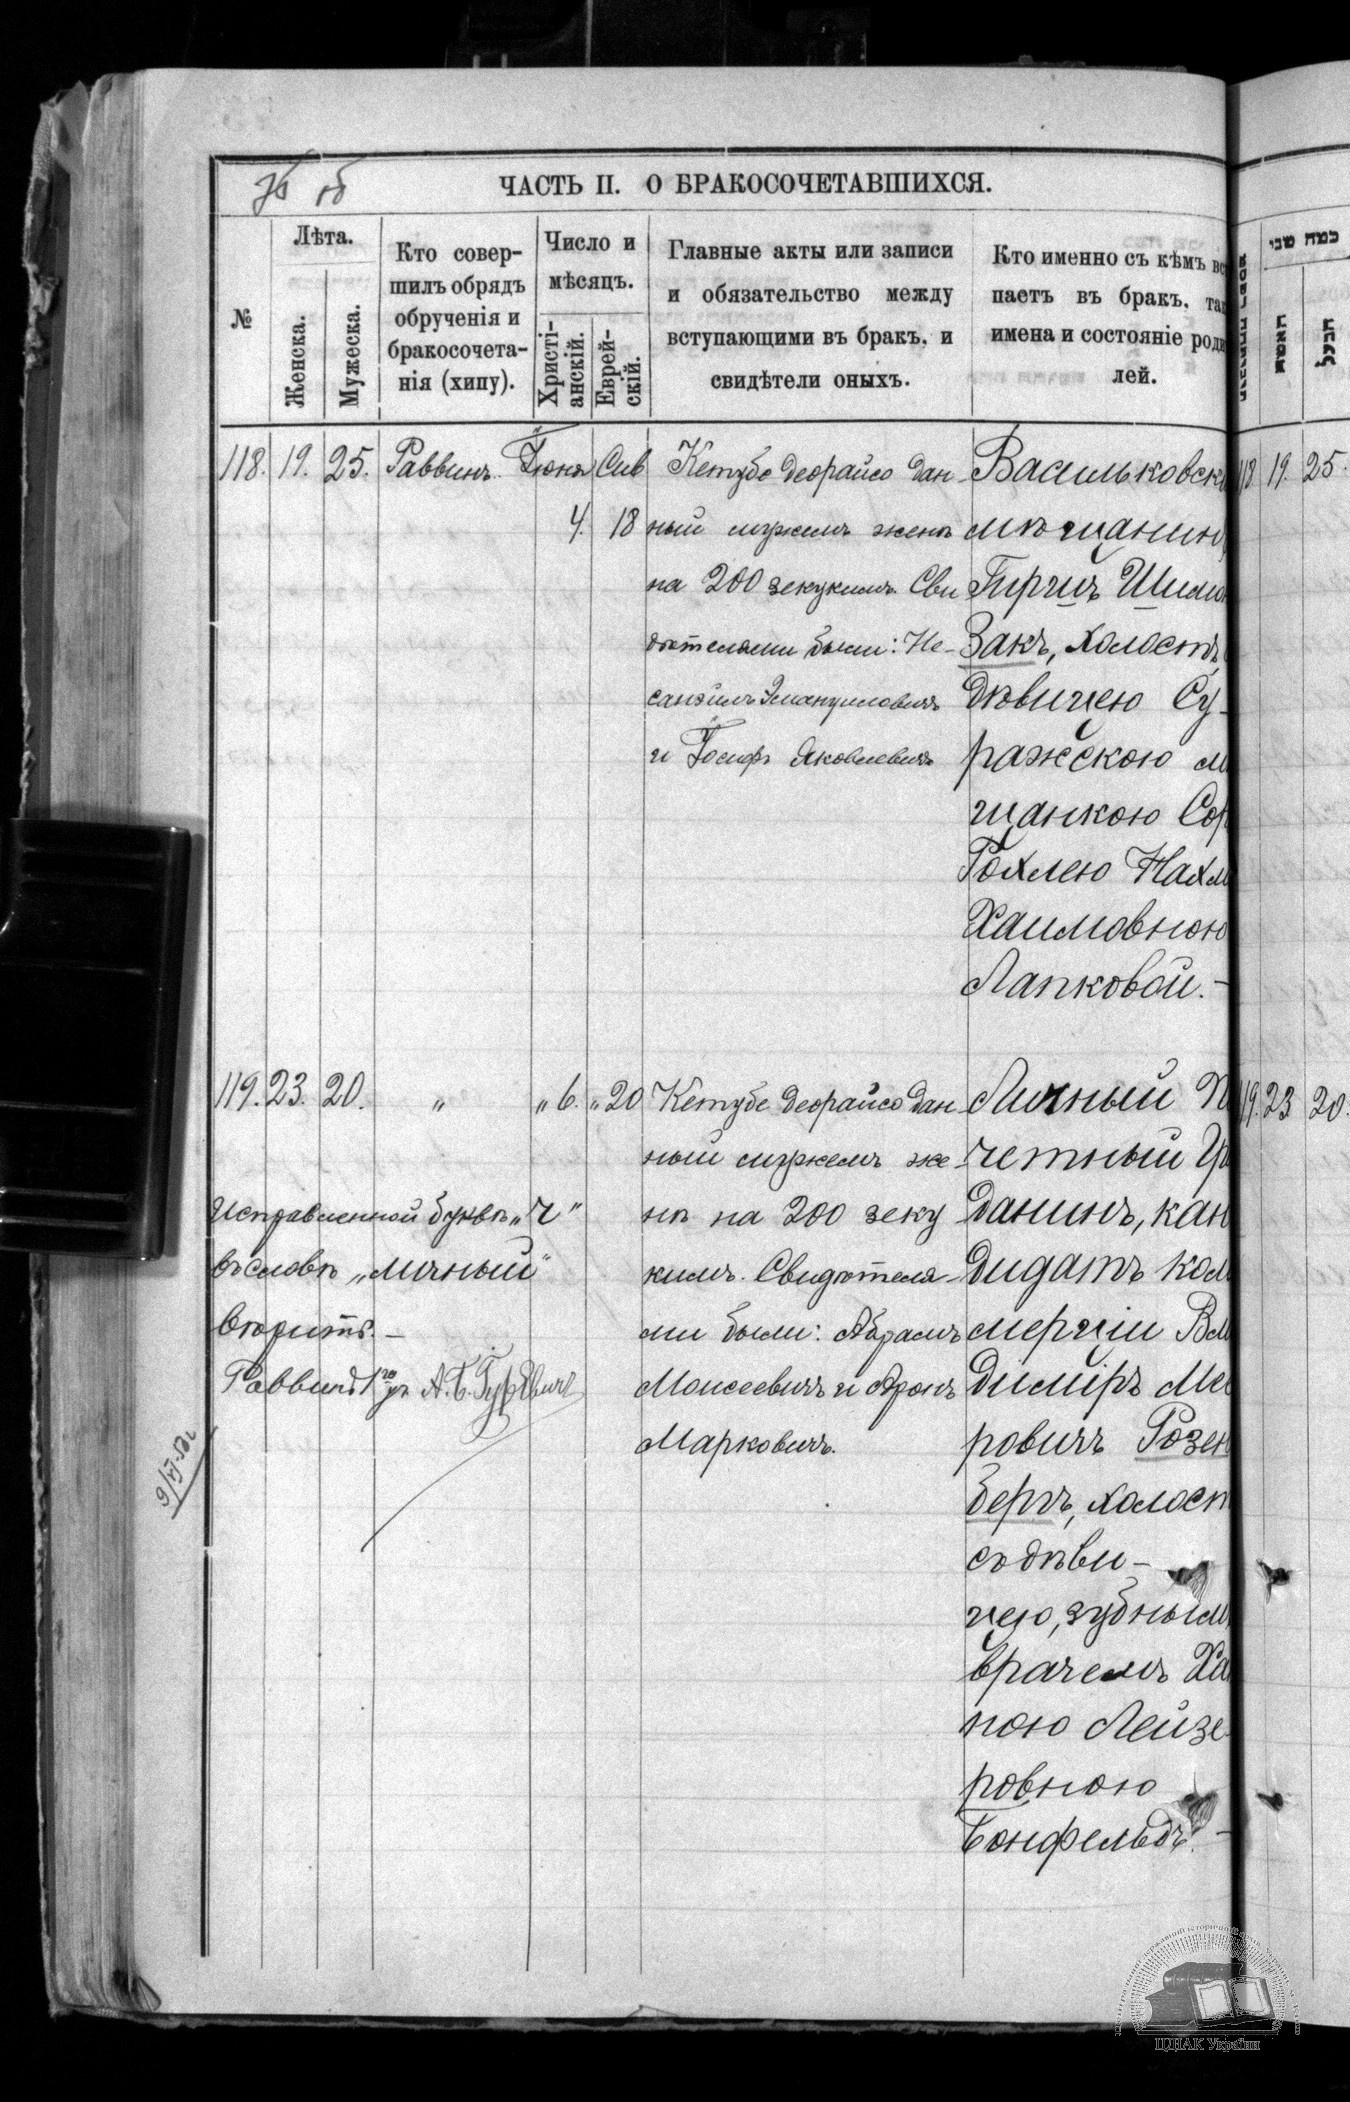 об
ЧАСТЬ II. О БРАКОСОЧЕТАВШИХСЯ.
№
Лѣта.
Женска.
Мужеска.
Кто совер-
шилъ обрядъ
обрученія и
бракосочета-
нія (хипу).
Число и
мѣсяцъ.
Христі-
анскій.
Еврей-
скій.
Главные акты или записи
и обязательство между
вступающими въ бракъ, и
свидѣтели оныхъ.
Кто именно съ кѣмъ вс
паетъ въ бракъ, та
имена и состояніе роди
лей.
כמה שני
האשה
הבעל
118. 19. 25. Раввинъ. Іюня Сив
4. 18
Кетубе деорайсо дан-
ный мужемъ женѣ
на 200 зекукимъ. Сви
дѣтелями были: Не-
санэилъ Эмануиловичъ
и Іосифъ Яковлевичъ
Васильковскі
мѣщанинъ
Гиршъ Шимо
Закъ, холостъ,
дѣвицею Су-
ражскою м
щанкою Сор
Рохлею Нахм
Хаимовною
Лапковой. –
118 19. 25.
119. 23. 20. " " 6. " 20
Кетубе деорайсо дан-
ный мужемъ же-
нѣ на 200 зеку
кимъ. Свидѣтеля-
ми были: Абрамъ
Моисеевичъ и Аронъ
Марковичъ.
Личный П
четный Гр
данинъ, кан
дидатъ ком
мерціи Вл
димiръ Ме
ровичъ Розен
бергъ, холост
съ дѣви-
цею, зубным
врачемъ Ха
ною Лейзе-
ровною
Бонфельдъ. –
119. 23 20.
Исправленной буквѣ „ч"
въ словѣ „личный"
вѣрить. –
Раввинъ г. А. Б. Гуревичъ
ЦДІАК України